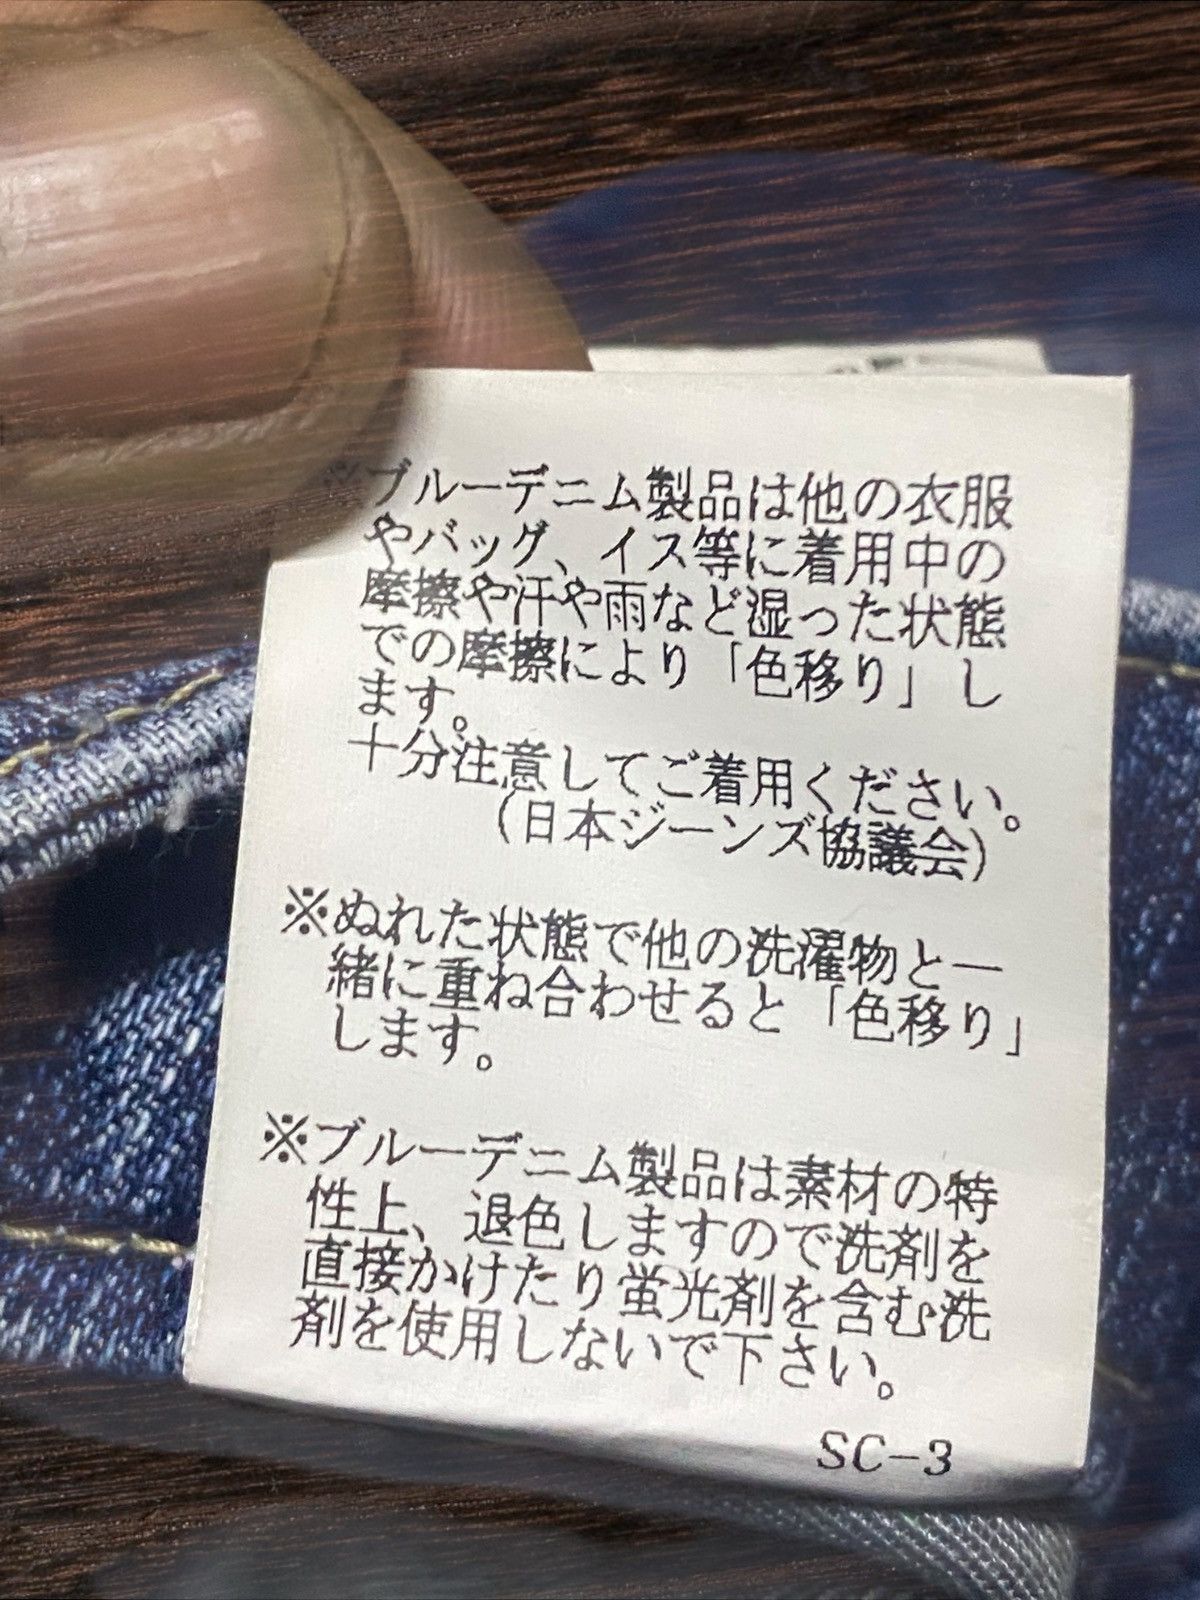 ※ブルーデニム製品は他の衣服
やバッグ、イス等に着用中の
摩擦や汗や雨など湿った状態
での摩擦により「色移り」し
ます。
十分注意してご着用ください。
(日本ジーンズ協議会)
※ぬれた状態で他の洗濯物と一
緒に重ね合わせると「色移り」
します。
※ブルーデニム製品は素材の特
性上、退色しますので洗剤を
直接かけたり蛍光剤を含む洗
剤を使用しないで下さい。
SC-3